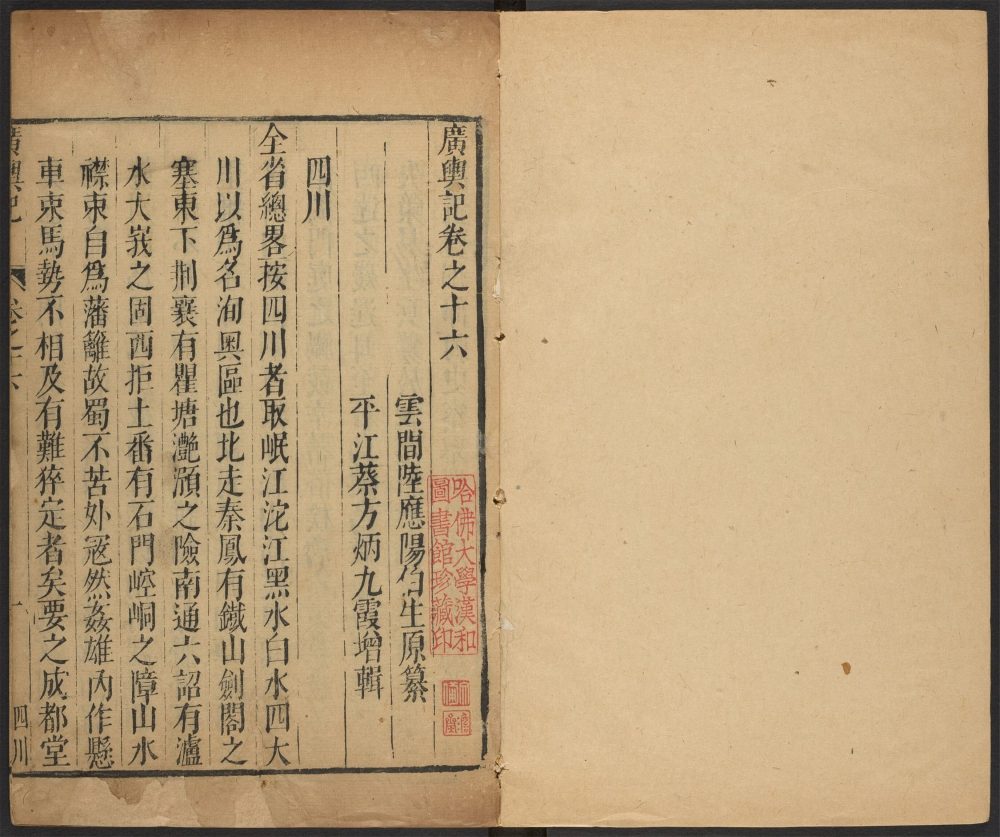 廣輿記卷之十六
雲間陸應陽伯生原纂
平江蔡方炳九霞增輯
哈佛大學漢和
圖書館珍藏印
四川
全省總畧按四川者取岷江沱江黑水白水四大
川以爲名洵奥區也北走秦鳳有鐵山劍閣之
塞東下荆襄有瞿塘灔澦之險南通六詔有瀘
水大峩之固西拒土番有石門崆峒之障山水
襟束自爲藩籬故蜀不苦外宼然姦雄内作懸
車束馬勢不相及有難猝定者矣要之成都堂
廣輿記 卷之十六 一 四川